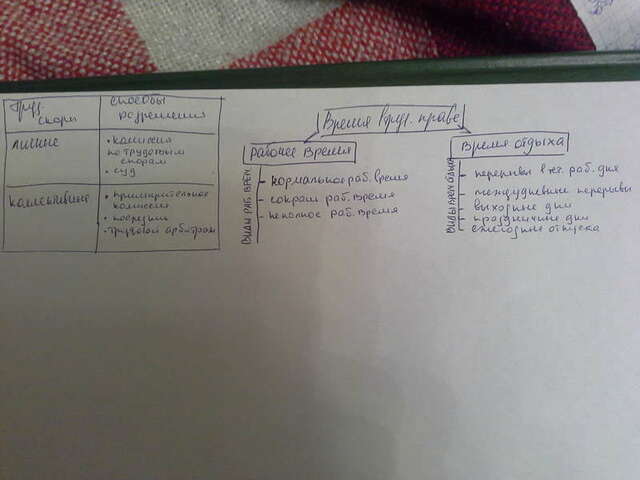 Труд. споры
способы разрешения
личные
• комиссия
по трудовым
спорам
• суд
коллективные
• примирительное
комиссия
• посредник
• трудовой арбитраж
Время в труд. праве
рабочее время
ВИДЫ РАБ. ВРЕМ
– нормальное раб. время
– сокращ раб. время
– неполное раб. время
Время отдыха
– перерывы в теч. раб. дня
– междудневные перерывы
– выходные дни
– праздничные дни
– ежегодные отпуска